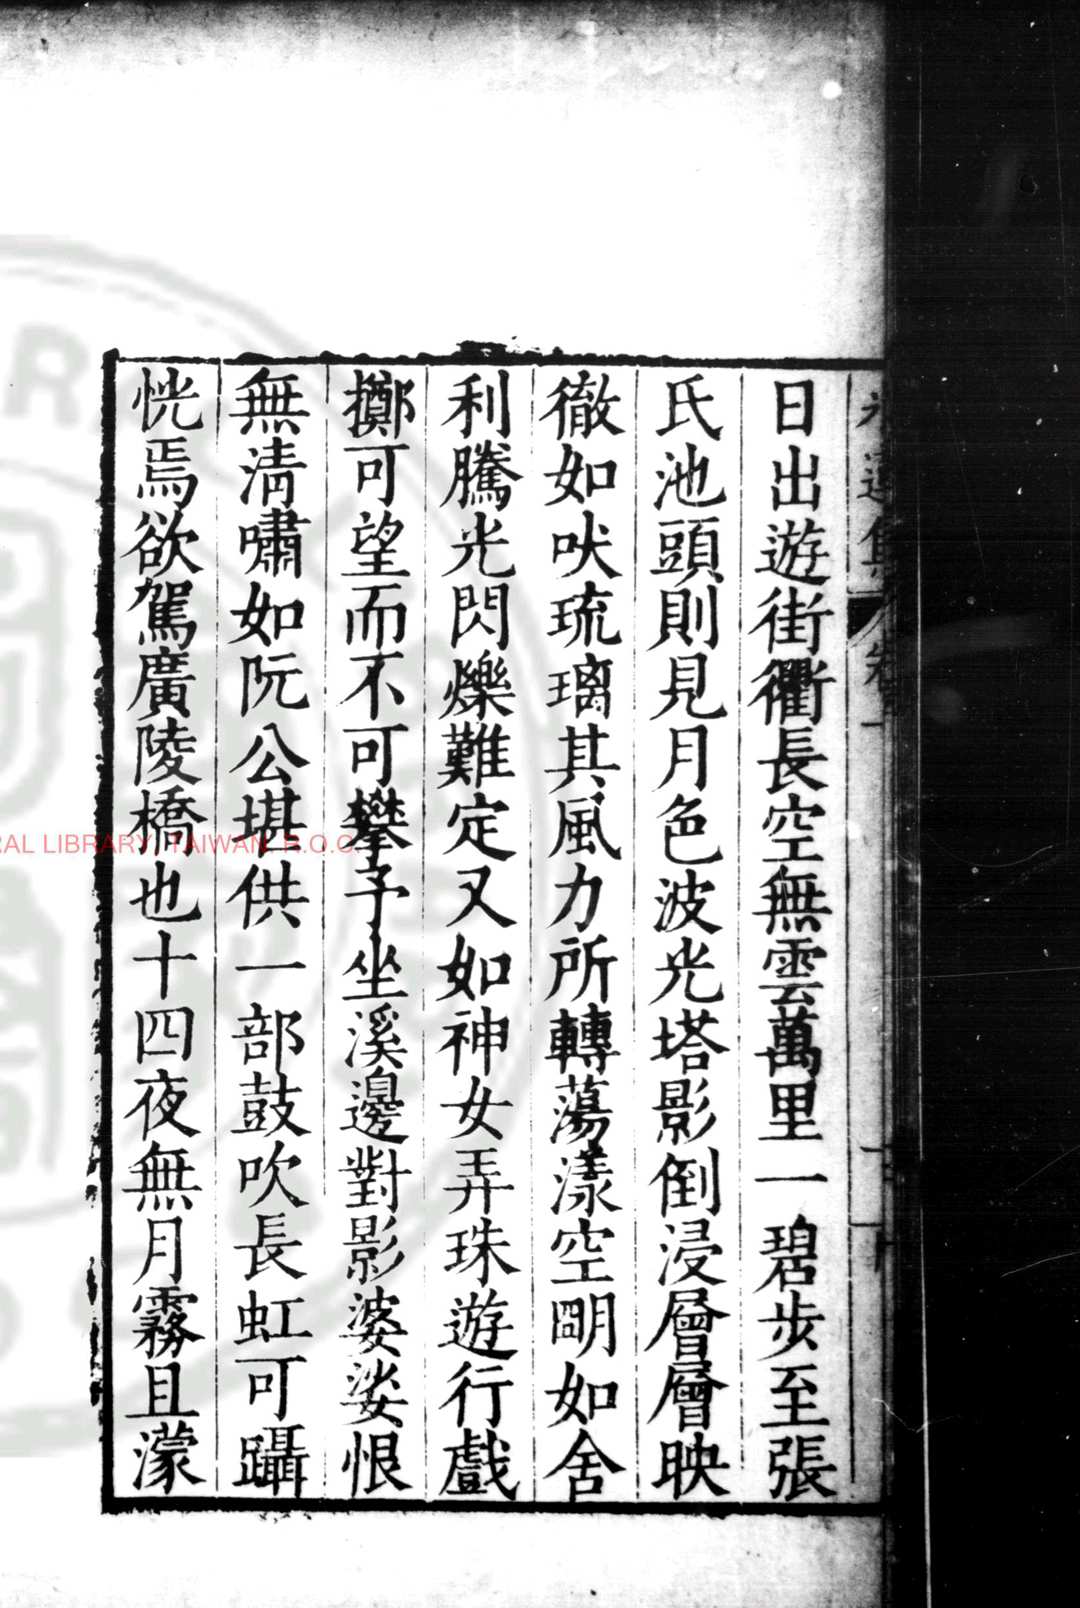 日出遊街衢長空無雲萬里一碧步至張
氏池頭則見月色波光塔影倒浸層層映
徹如吠琉璃其風力所轉蕩漾空明如舍
利騰光閃爍難定又如神女弄珠遊行戲
擲可望而不可攀予坐溪邊對影婆娑恨
無清嘯如阮公堪供一部鼓吹長虹可躡
恍焉欲駕廣陵橋也十四夜無月霧且濛
RAL LIBRARY, TAIWAN. R.O.C.